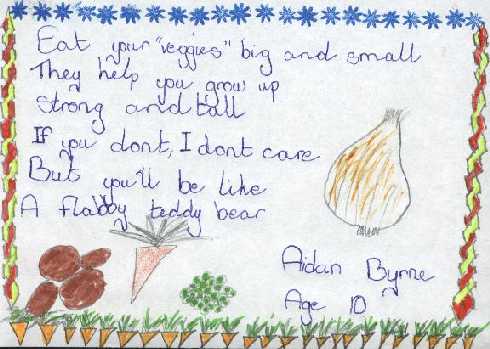 Eat your "veggies" big and small
They help you grow up
Strong and tall
If you dont, I dont care
But you'll be like
A flabby teddy bear
Aidan Byrne
Age 10